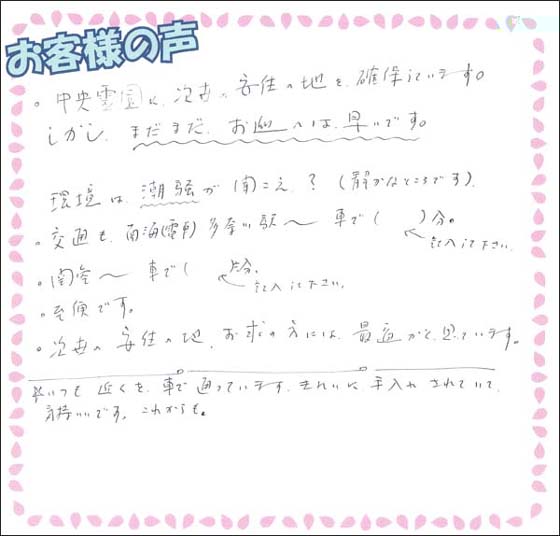 お客様の声
。中央霊園に、次世の安住の地を、確保しています。
しかし、まだまだ、お迎へは、早いです。
環境は、潮騒が(聞)こえ、?(静かなところです)、
・交通も、南海(電車)多奈川駅〜車で(  )分。
記入して下さい。
・関空〜車で(  )分。
記入して下さい。
・至便です。
・次世の安住の地、お求の方には、最適かと、思っています。
※いつも近くを、車で通っています、きれいに手入れされていて、
気持いいです。これからも。